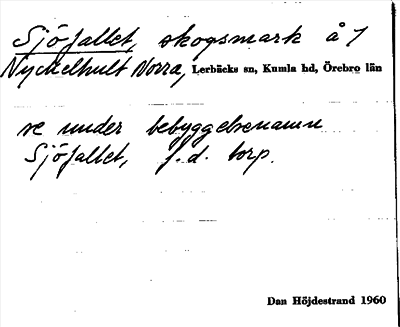 Sjöfallet, skogsmark å 1
Nyckelhult Norra, Lerbäcks sn, Kumla hd, Örebro län
se under bebyggelsenamn
Sjöfallet, f.d. torp.
Dan Höjdestrand 1960